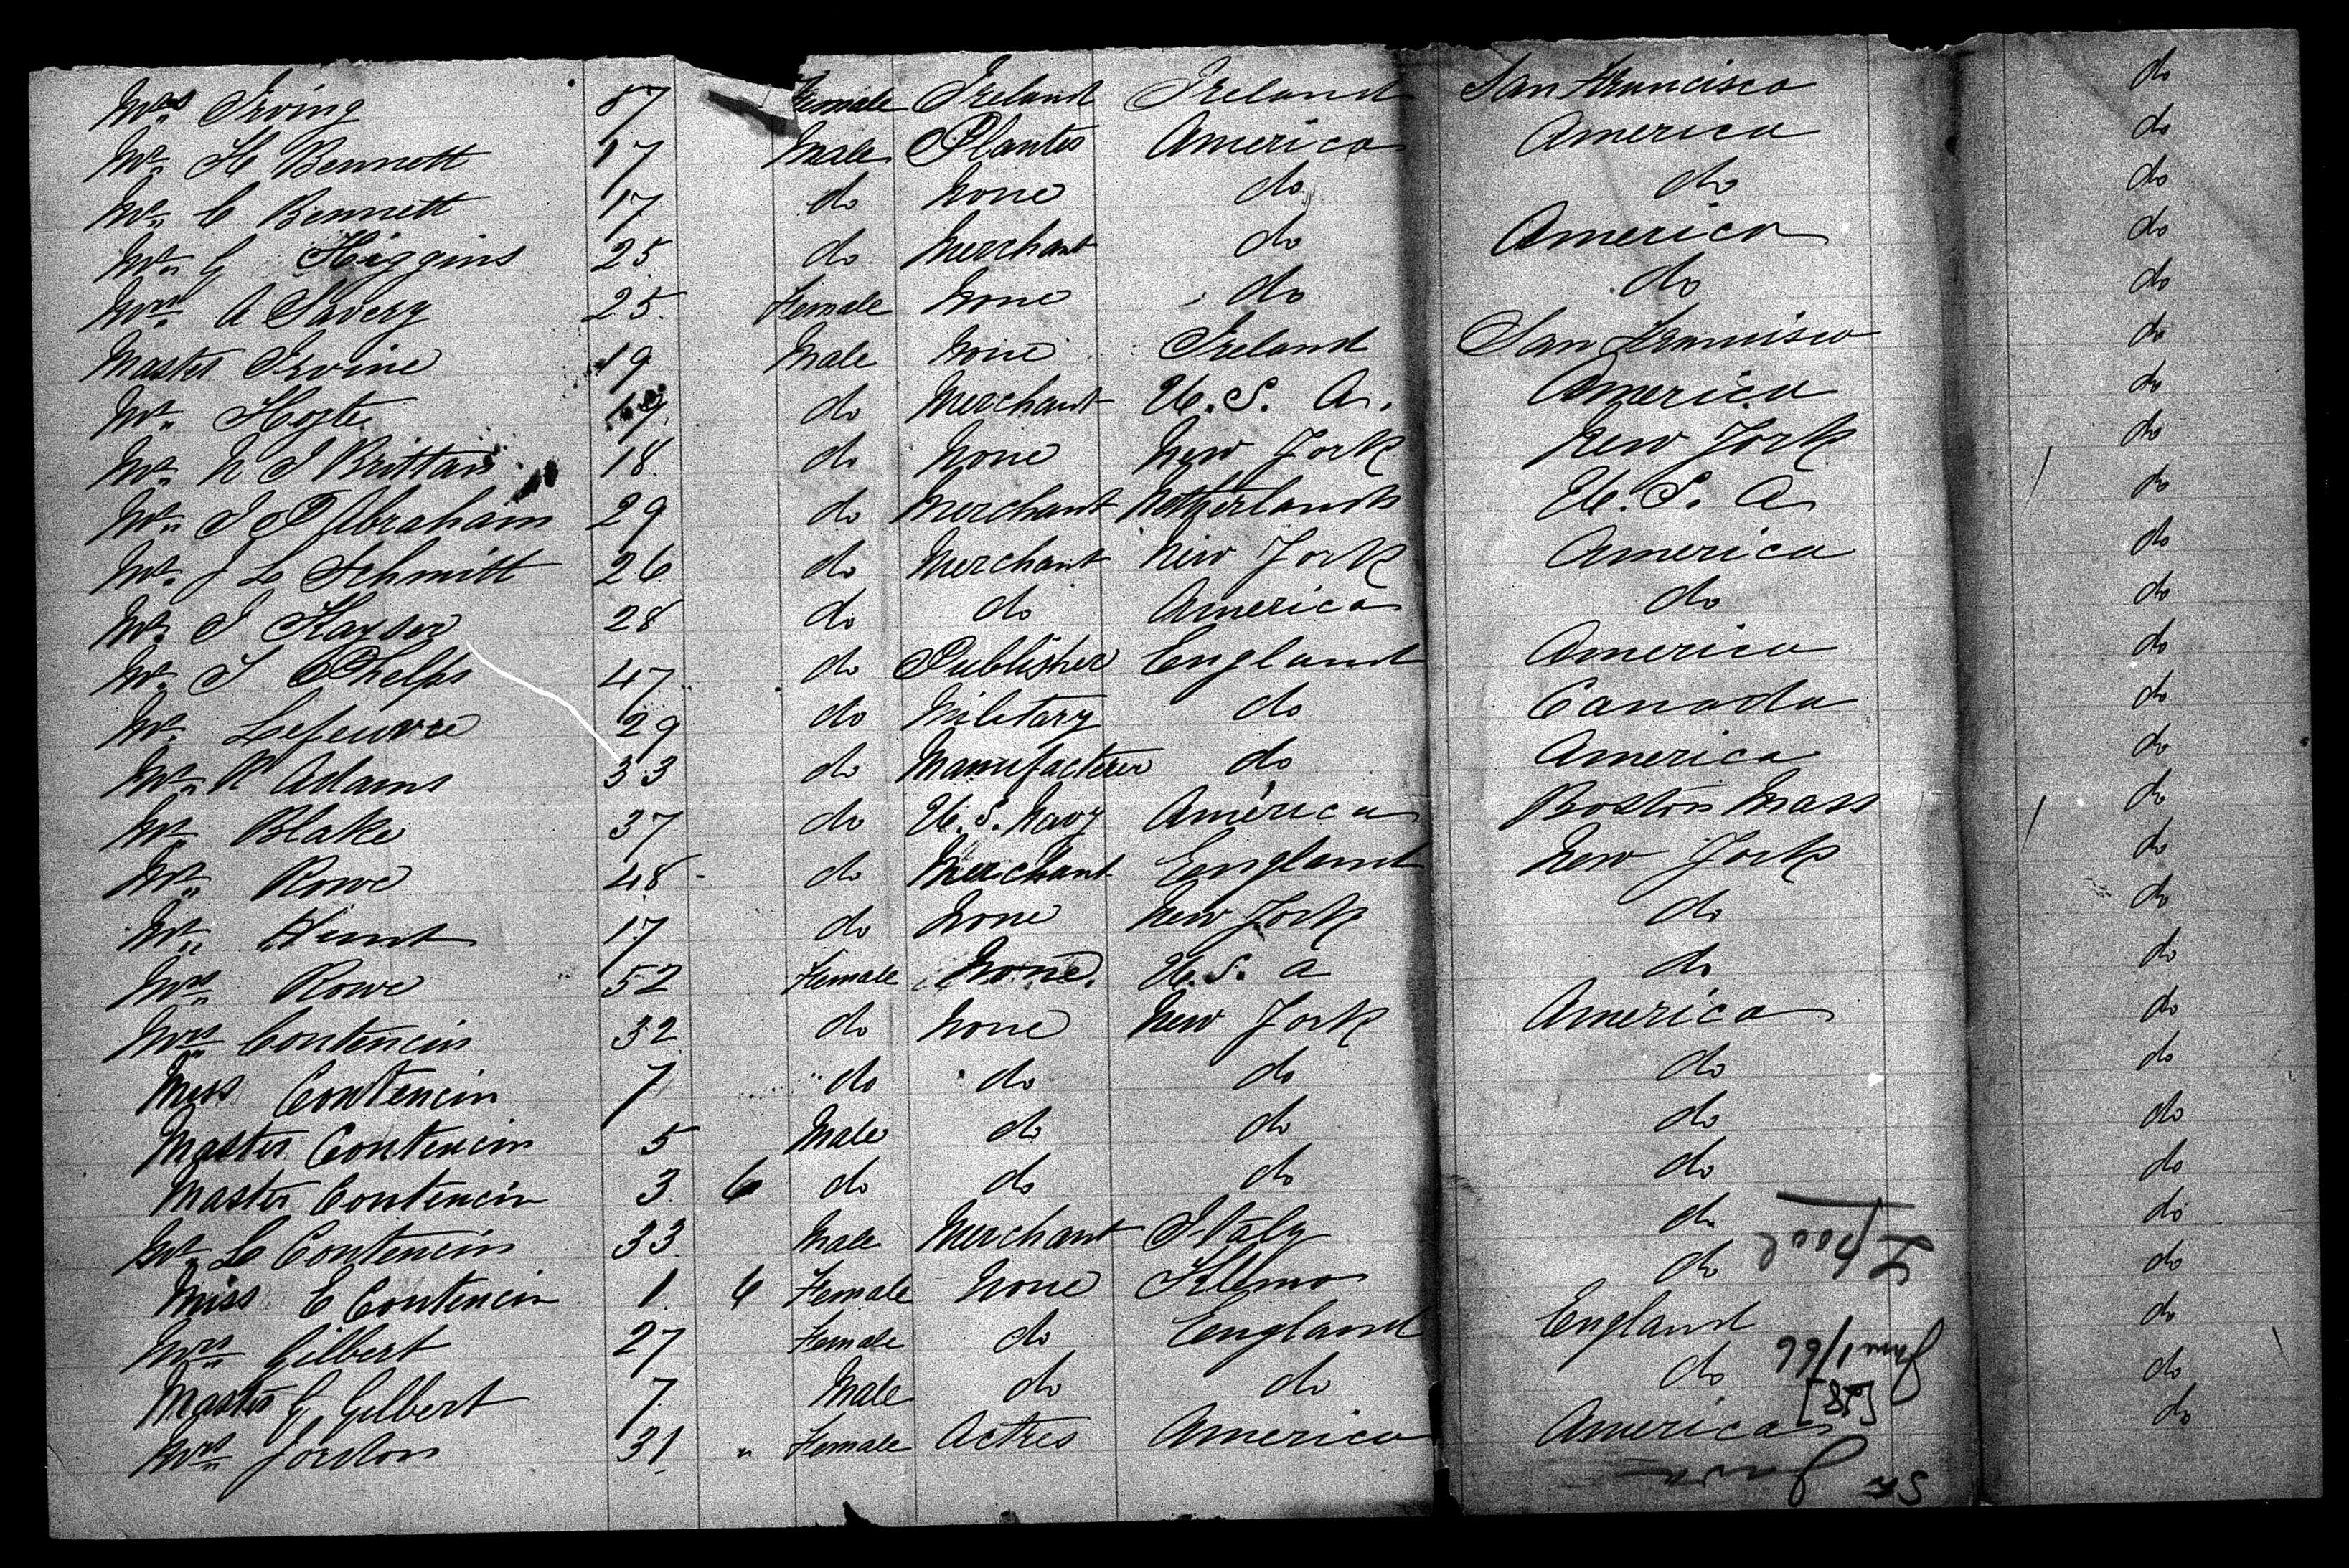 Mrs Irving 57 Female Ireland Ireland San Francisco do
Mr H Bennett 17 Male Planter America America do
Mr C Bennett 17 do None do do do
Mr G Higgins 25 do Merchant do America do
Mrs A Savery 25 Female None do do do
Master Irvine 19 Male None Ireland San Francisco do
Mr Hoste 19 do Merchant U.S.A. America do
Mr N J Brittan 18 do None New York New York do
Mr J P Abraham 29 do Merchant Netherlands U.S.A do
Mr J L Schmitt 26 do Merchant New York America do
Mr J Kayser 28 do do America do do
Mr J Phelps 47 do Publisher England America do
Mr Lefeuvre 29 do Military do Canada do
Mr R Adams 33 do Manufacturer do America do
Mr Blake 37 do U.S. Navy America Boston Mass do
Mr Rowe 48 do Merchant England New York do
Mr Hunt 17 do None New York do do
Mrs Rowe 52 Female None. U.S. a do do
Mrs Contencin 32 do None New York America do
Miss Contencin 7 do do do do do
Master Contencin 5 Male do do do do
Master Contencin 3 6 do do do do do
Mr L Contencin 33 Male Merchant Italy do do
Miss E Contencin 1 6 Female None do do
Mrs Gilbert 27 Female do England England do
Master G Gilbert 7 Male do do do do
Mrs Jordon 31 " Female Actres America America do
Lpool
June 1/66
[85]
Java
SS